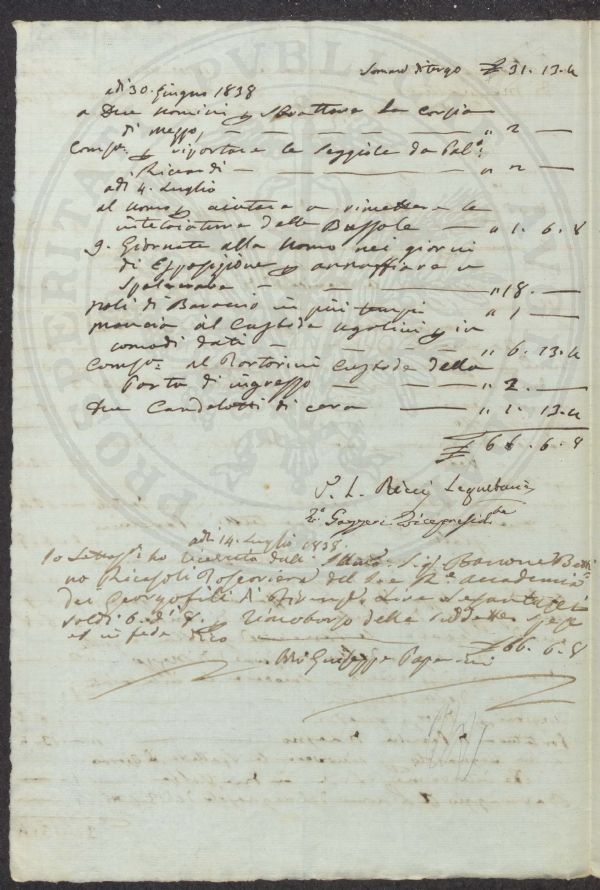 Somma di tergo £ 31. 13. 4
adì 30. Giugno 1838
a Due uomini p sbrattare la corsia
di mezzo, — — — — — „ 2 —
Comp.o p riportare le seggiole da Pal.o
Ricardi — — „ 2 —
adì 4. Luglio
al uomo p aiutare a rimettere le
intelaiature delle Bussole — „ 1. 6. 8
9. Giornate alla uomo nei giorni
di Esposizione p annaffiare e
— — „ 18. —
in più tempi — — „ 1 —
mancia al Custode Ugolini p in
comodi dati — — — — „ 6. 13. 4
Comp.o al Custode della
Porta di ingresso — — — „ 2. —
Due Candelotti di cera — — „ 1. 13. 4
£ 66. 6. 8
P. L. Ricci
Gazzeri Vicepresid.te
adì 14. Luglio 1838
Io ho ricevuto dall Sig. Barone Betti
no Ricasoli della R. Accademia
dei Georgofili di Firenze Lire Sesantasei
soldi 6. d. 8. p Rimborso delle suddette spese
ed in fede dico £ 66. 6. 8
Giuseppe